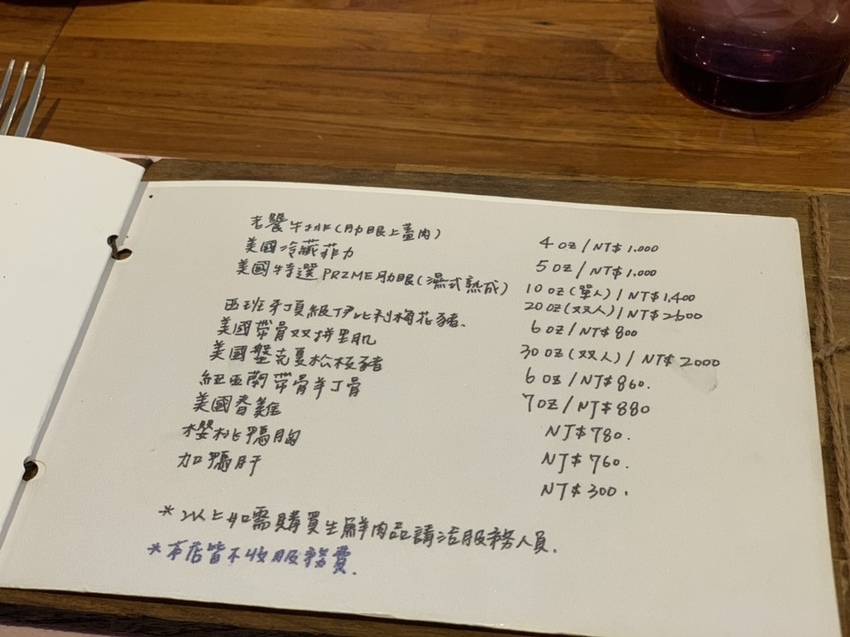 老饕牛排(肋眼上蓋肉) 4 oz / NT$ 1.000
美國冷藏菲力 5 oz / NT$ 1.000
美國特選 PRIME 肋眼(濕式熟成) 10 oz (單人) / NT$ 1,400
20 oz (双人) / NT$ 2600
西班牙頂級伊比利梅花豬. 6 oz / NT$ 800
美國帶骨双拼里肌 30 oz (双人) / NT$ 2000
美國盤克夏松板豬 6 oz / NT$ 860.
紐西蘭帶骨羊丁骨 7 oz / NT$ 880
美國春雞 NT$ 780.
櫻桃鴨胸 NT$ 760.
加鴨肝 NT$ 300.
*以上如需購買生鮮肉品請洽服務人員.
*本店皆不收服務費.